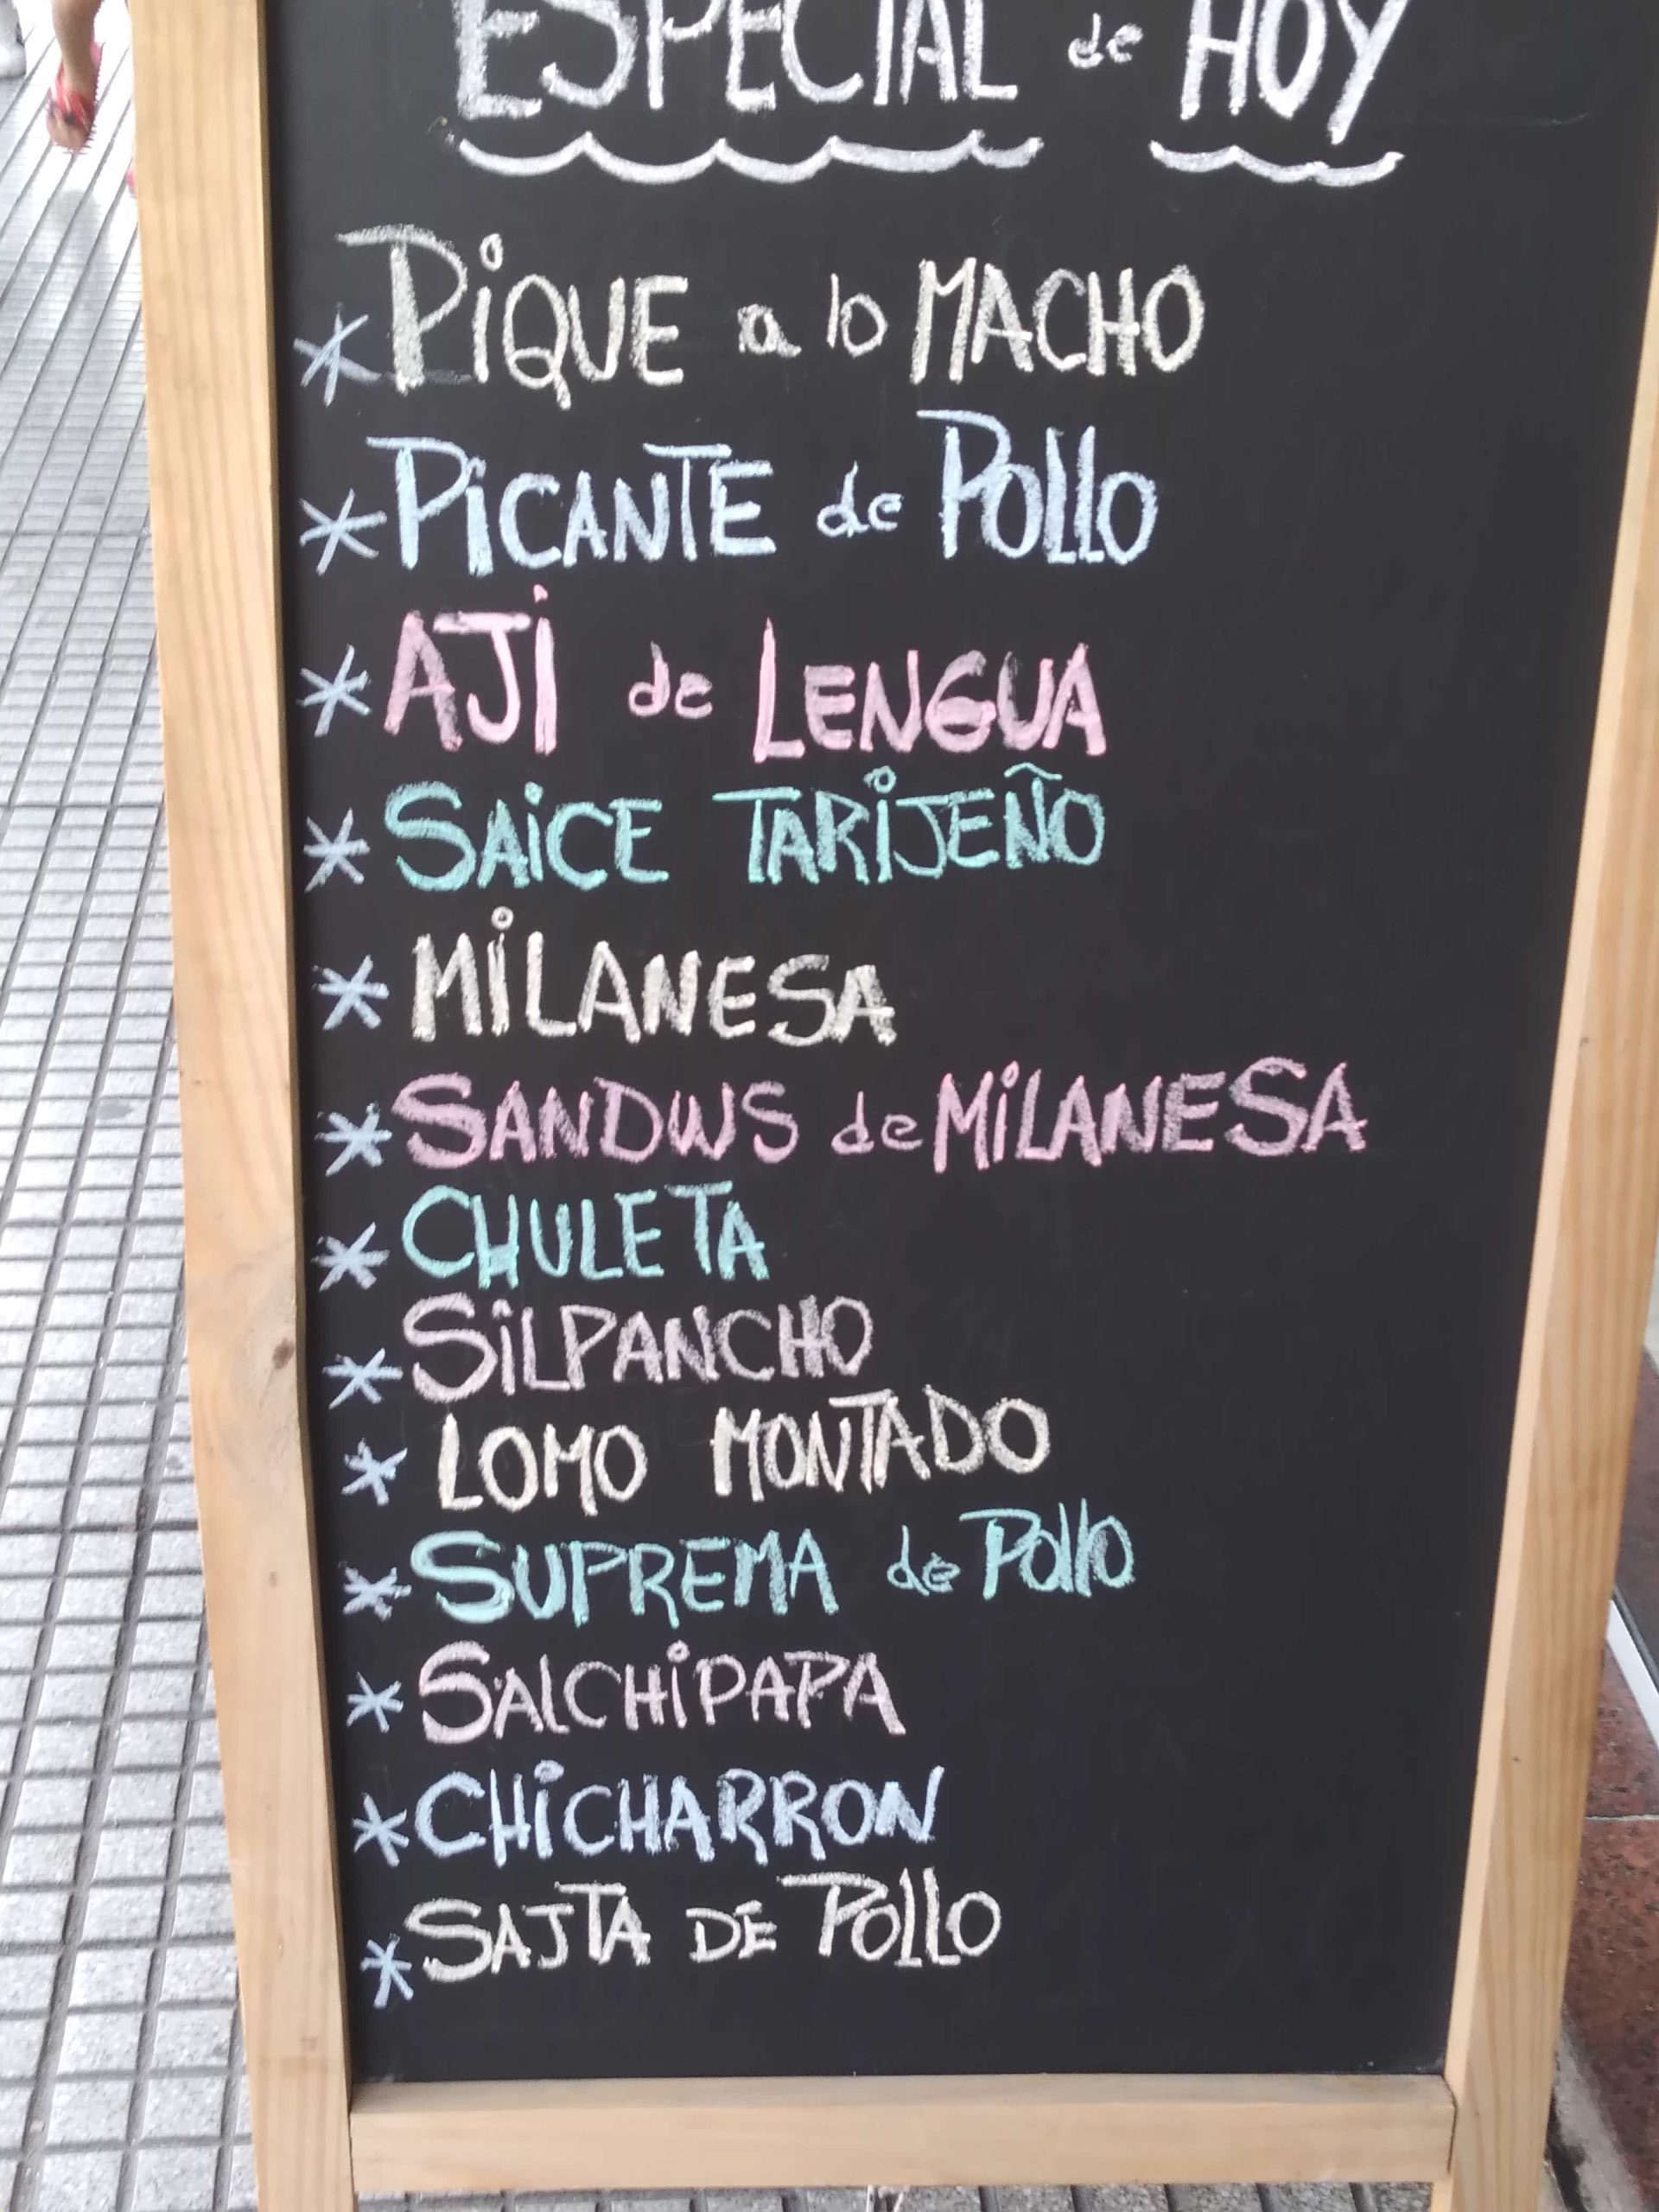 ESPECIAL de HOY
* PiQUE a lo MACHO
* PiCANTE de Pollo
* AJi de LENGUA
* SAiCE TARiJEÑO
* MiLANESA
* SANDWS de MiLANESA
* CHULETA
* SiLPANCHO
* LOMO MONTADO
* SUPREMA de Pollo
* SAlCHiPAPA
* CHiCHARRON
* SAJTA DE Pollo